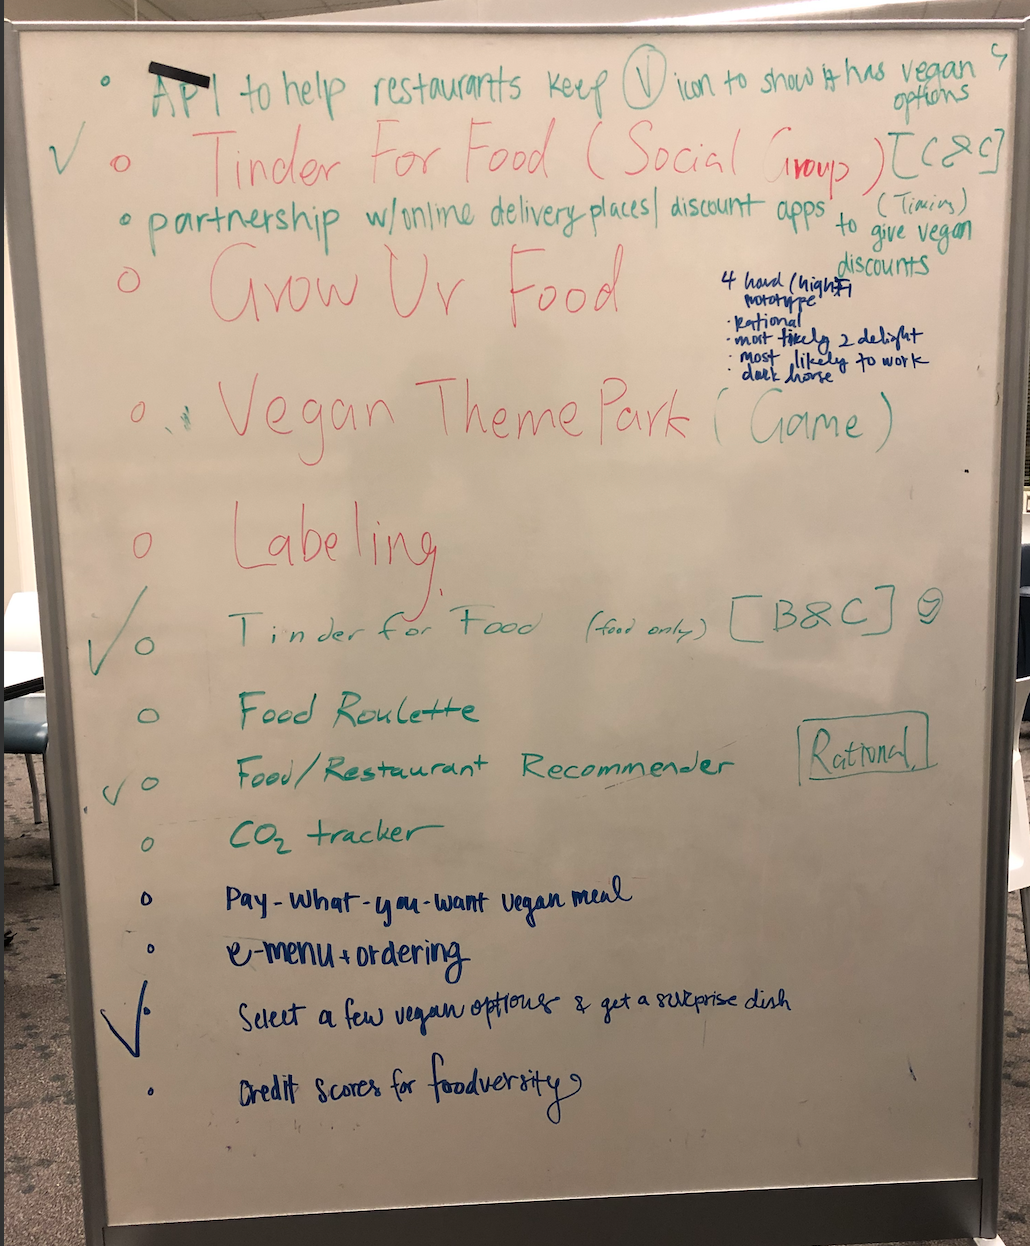 API to help restaurants keep Ⓥ icon to show it has vegan
options
Tinder For Food (Social Group) [C&C]
(Timing)
partnership w/online delivery places/discount apps to give vegan
discounts
Grow Ur Food
4 hard/high-Fi
prototype
· Rational
· most likely 2 delight
· most likely to work
· dark horse
Vegan Theme Park (Game)
Labeling
Tinder for Food (food only) [B&C]
Food Roulette
Food/Restaurant Recommender Rational
CO₂ tracker
Pay-what-you-want vegan meal
e-menu + ordering
Select a few vegan options & get a surprise dish
Credit scores for foodversity